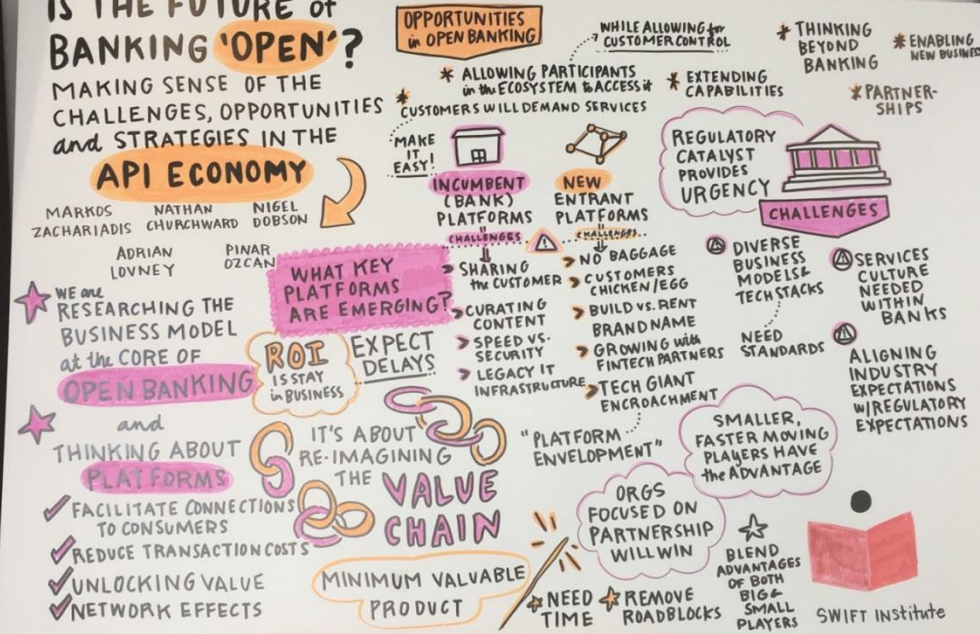 IS THE FUTURE of
BANKING 'OPEN'?
MAKING SENSE OF THE
CHALLENGES, OPPORTUNITIES
and STRATEGIES IN THE
API ECONOMY
MARKOS
ZACHARIADIS
NATHAN
CHURCHWARD
NIGEL
DOBSON
ADRIAN
LOVNEY
PINAR
OZCAN
WE are
RESEARCHING THE
BUSINESS MODEL
at the CORE OF
OPEN BANKING
and
THINKING ABOUT
PLATFORMS
FACILITATE CONNECTIONS
TO CONSUMERS
REDUCE TRANSACTION COSTS
UNLOCKING VALUE
NETWORK EFFECTS
OPPORTUNITIES
in OPEN BANKING
WHILE ALLOWING for
CUSTOMER CONTROL
* ALLOWING PARTICIPANTS
in the ECOSYSTEM to ACCESS it
* CUSTOMERS WILL DEMAND SERVICES
* EXTENDING
CAPABILITIES
* THINKING
BEYOND
BANKING
* ENABLING
NEW
* PARTNER-
SHIPS
MAKE
IT
EASY!
INCUMBENT
(BANK)
PLATFORMS
CHALLENGES
SHARING
the CUSTOMER
CURATING
CONTENT
SPEED VS.
SECURITY
LEGACY IT
INFRASTRUCTURE
NEW
ENTRANT
PLATFORMS
CHALLENGES
NO BAGGAGE
CUSTOMERS
CHICKEN/EGG
BUILD VS. RENT
BRAND NAME
GROWING with
FINTECH PARTNERS
TECH GIANT
ENCROACHMENT
"PLATFORM
ENVELOPMENT"
REGULATORY
CATALYST
PROVIDES
URGENCY
CHALLENGES
DIVERSE
BUSINESS
MODELS &
TECH STACKS
NEED
STANDARDS
SERVICES
CULTURE
NEEDED
WITHIN
BANKS
ALIGNING
INDUSTRY
EXPECTATIONS
W/REGULATORY
EXPECTATIONS
WHAT KEY
PLATFORMS
ARE EMERGING?
ROI
IS STAY
in BUSINESS
EXPECT
DELAYS
IT'S ABOUT
RE-IMAGINING
THE VALUE
CHAIN
MINIMUM VALUABLE
PRODUCT
SMALLER,
FASTER MOVING
PLAYERS HAVE
the ADVANTAGE
ORGS
FOCUSED ON
PARTNERSHIP
WILL WIN
NEED
TIME
REMOVE
ROADBLOCKS
BLEND
ADVANTAGES
OF BOTH
BIG &
SMALL
PLAYERS
SWIFT INstitute